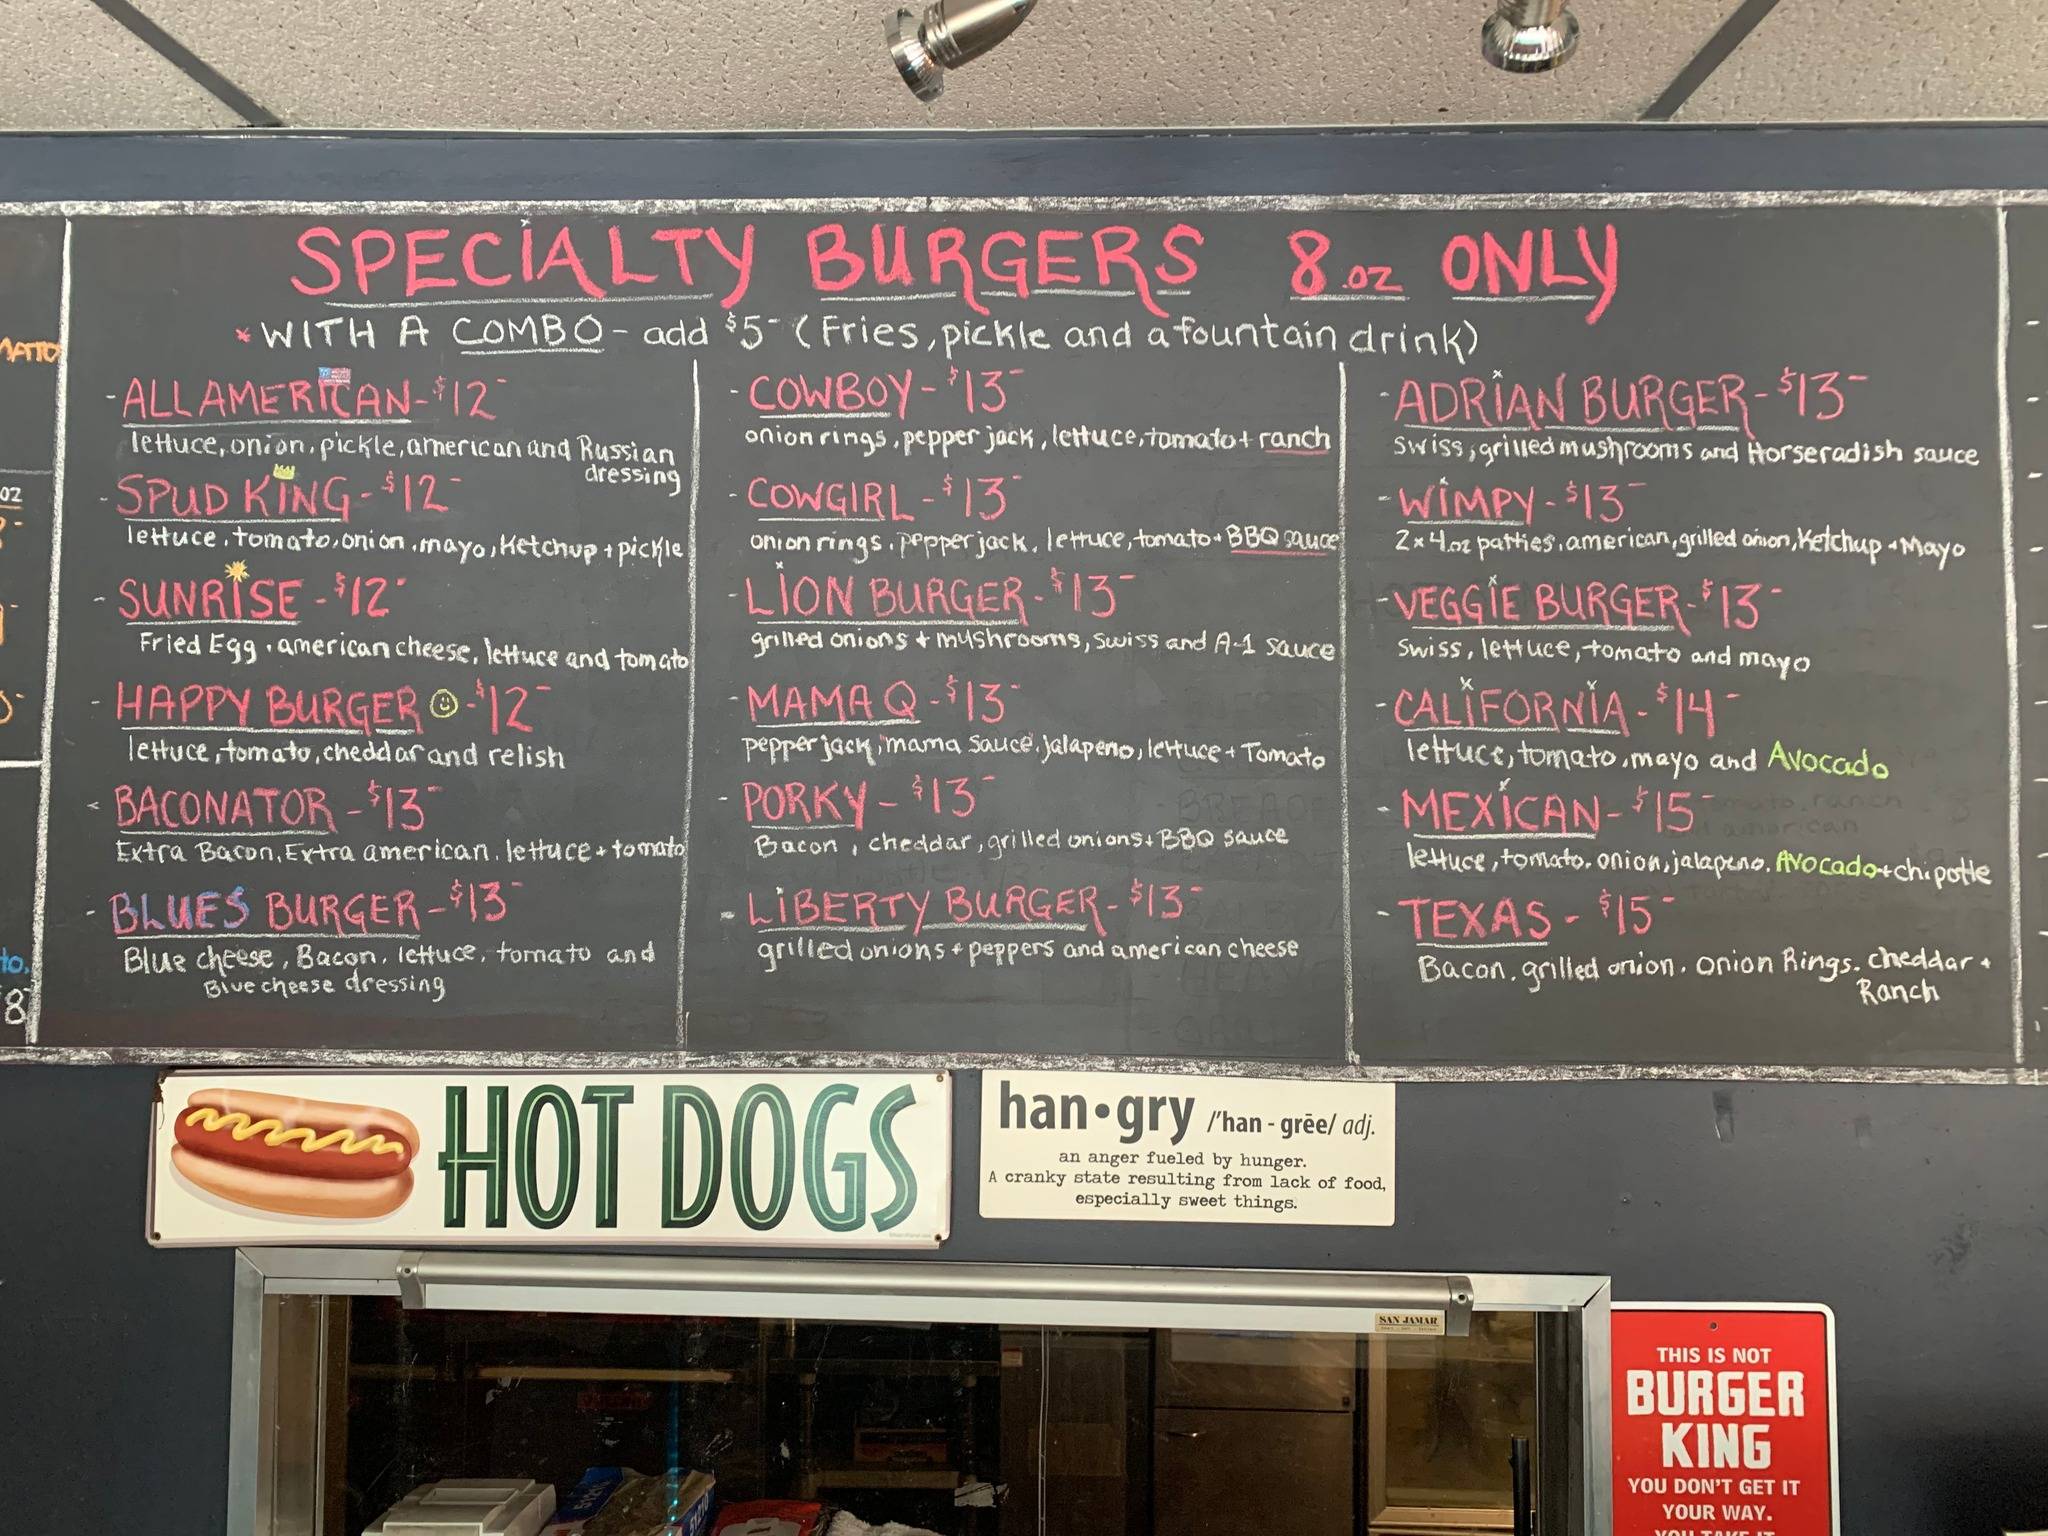 SPECIALTY BURGERS 8.oz ONLY
* WITH A COMBO - add $5- (Fries, pickle and a fountain drink)
- ALL AMERICAN - $12-
lettuce, onion, pickle, american and Russian
dressing
- SPUD KING - $12-
lettuce, tomato, onion, mayo, Ketchup + pickle
- SUNRISE - $12-
Fried Egg, american cheese, lettuce and tomato
- HAPPY BURGER - $12-
lettuce, tomato, cheddar and relish
- BACONATOR - $13-
Extra Bacon, Extra american, lettuce + tomato
- BLUES BURGER - $13-
Blue cheese, Bacon, lettuce, tomato and
Blue cheese dressing
- COWBOY - $13-
onion rings, pepper jack, lettuce, tomato + ranch
- COWGIRL - $13-
onion rings, pepper jack, lettuce, tomato + BBQ sauce
- LION BURGER - $13-
grilled onions + mushrooms, swiss and A-1 sauce
- MAMA Q - $13-
pepper jack, mama sauce, jalapeno, lettuce + Tomato
- PORKY - $13-
Bacon, cheddar, grilled onions + BBQ sauce
- LIBERTY BURGER - $13-
grilled onions + peppers and american cheese
- ADRIAN BURGER - $13-
swiss, grilled mushrooms and Horseradish sauce
- WIMPY - $13-
2x4.oz patties, american, grilled onion, Ketchup + Mayo
- VEGGIE BURGER - $13-
swiss, lettuce, tomato and mayo
- CALIFORNIA - $14-
lettuce, tomato, mayo and Avocado
- MEXICAN - $15-
lettuce, tomato, onion, jalapeno, Avocado + chipotle
- TEXAS - $15-
Bacon, grilled onion, onion Rings, cheddar +
Ranch
HOT DOGS
han•gry /'han - grēe/ adj.
an anger fueled by hunger.
A cranky state resulting from lack of food,
especially sweet things.
SAN JAMAR
THIS IS NOT
BURGER
KING
YOU DON'T GET IT
YOUR WAY.
YOU TAKE IT